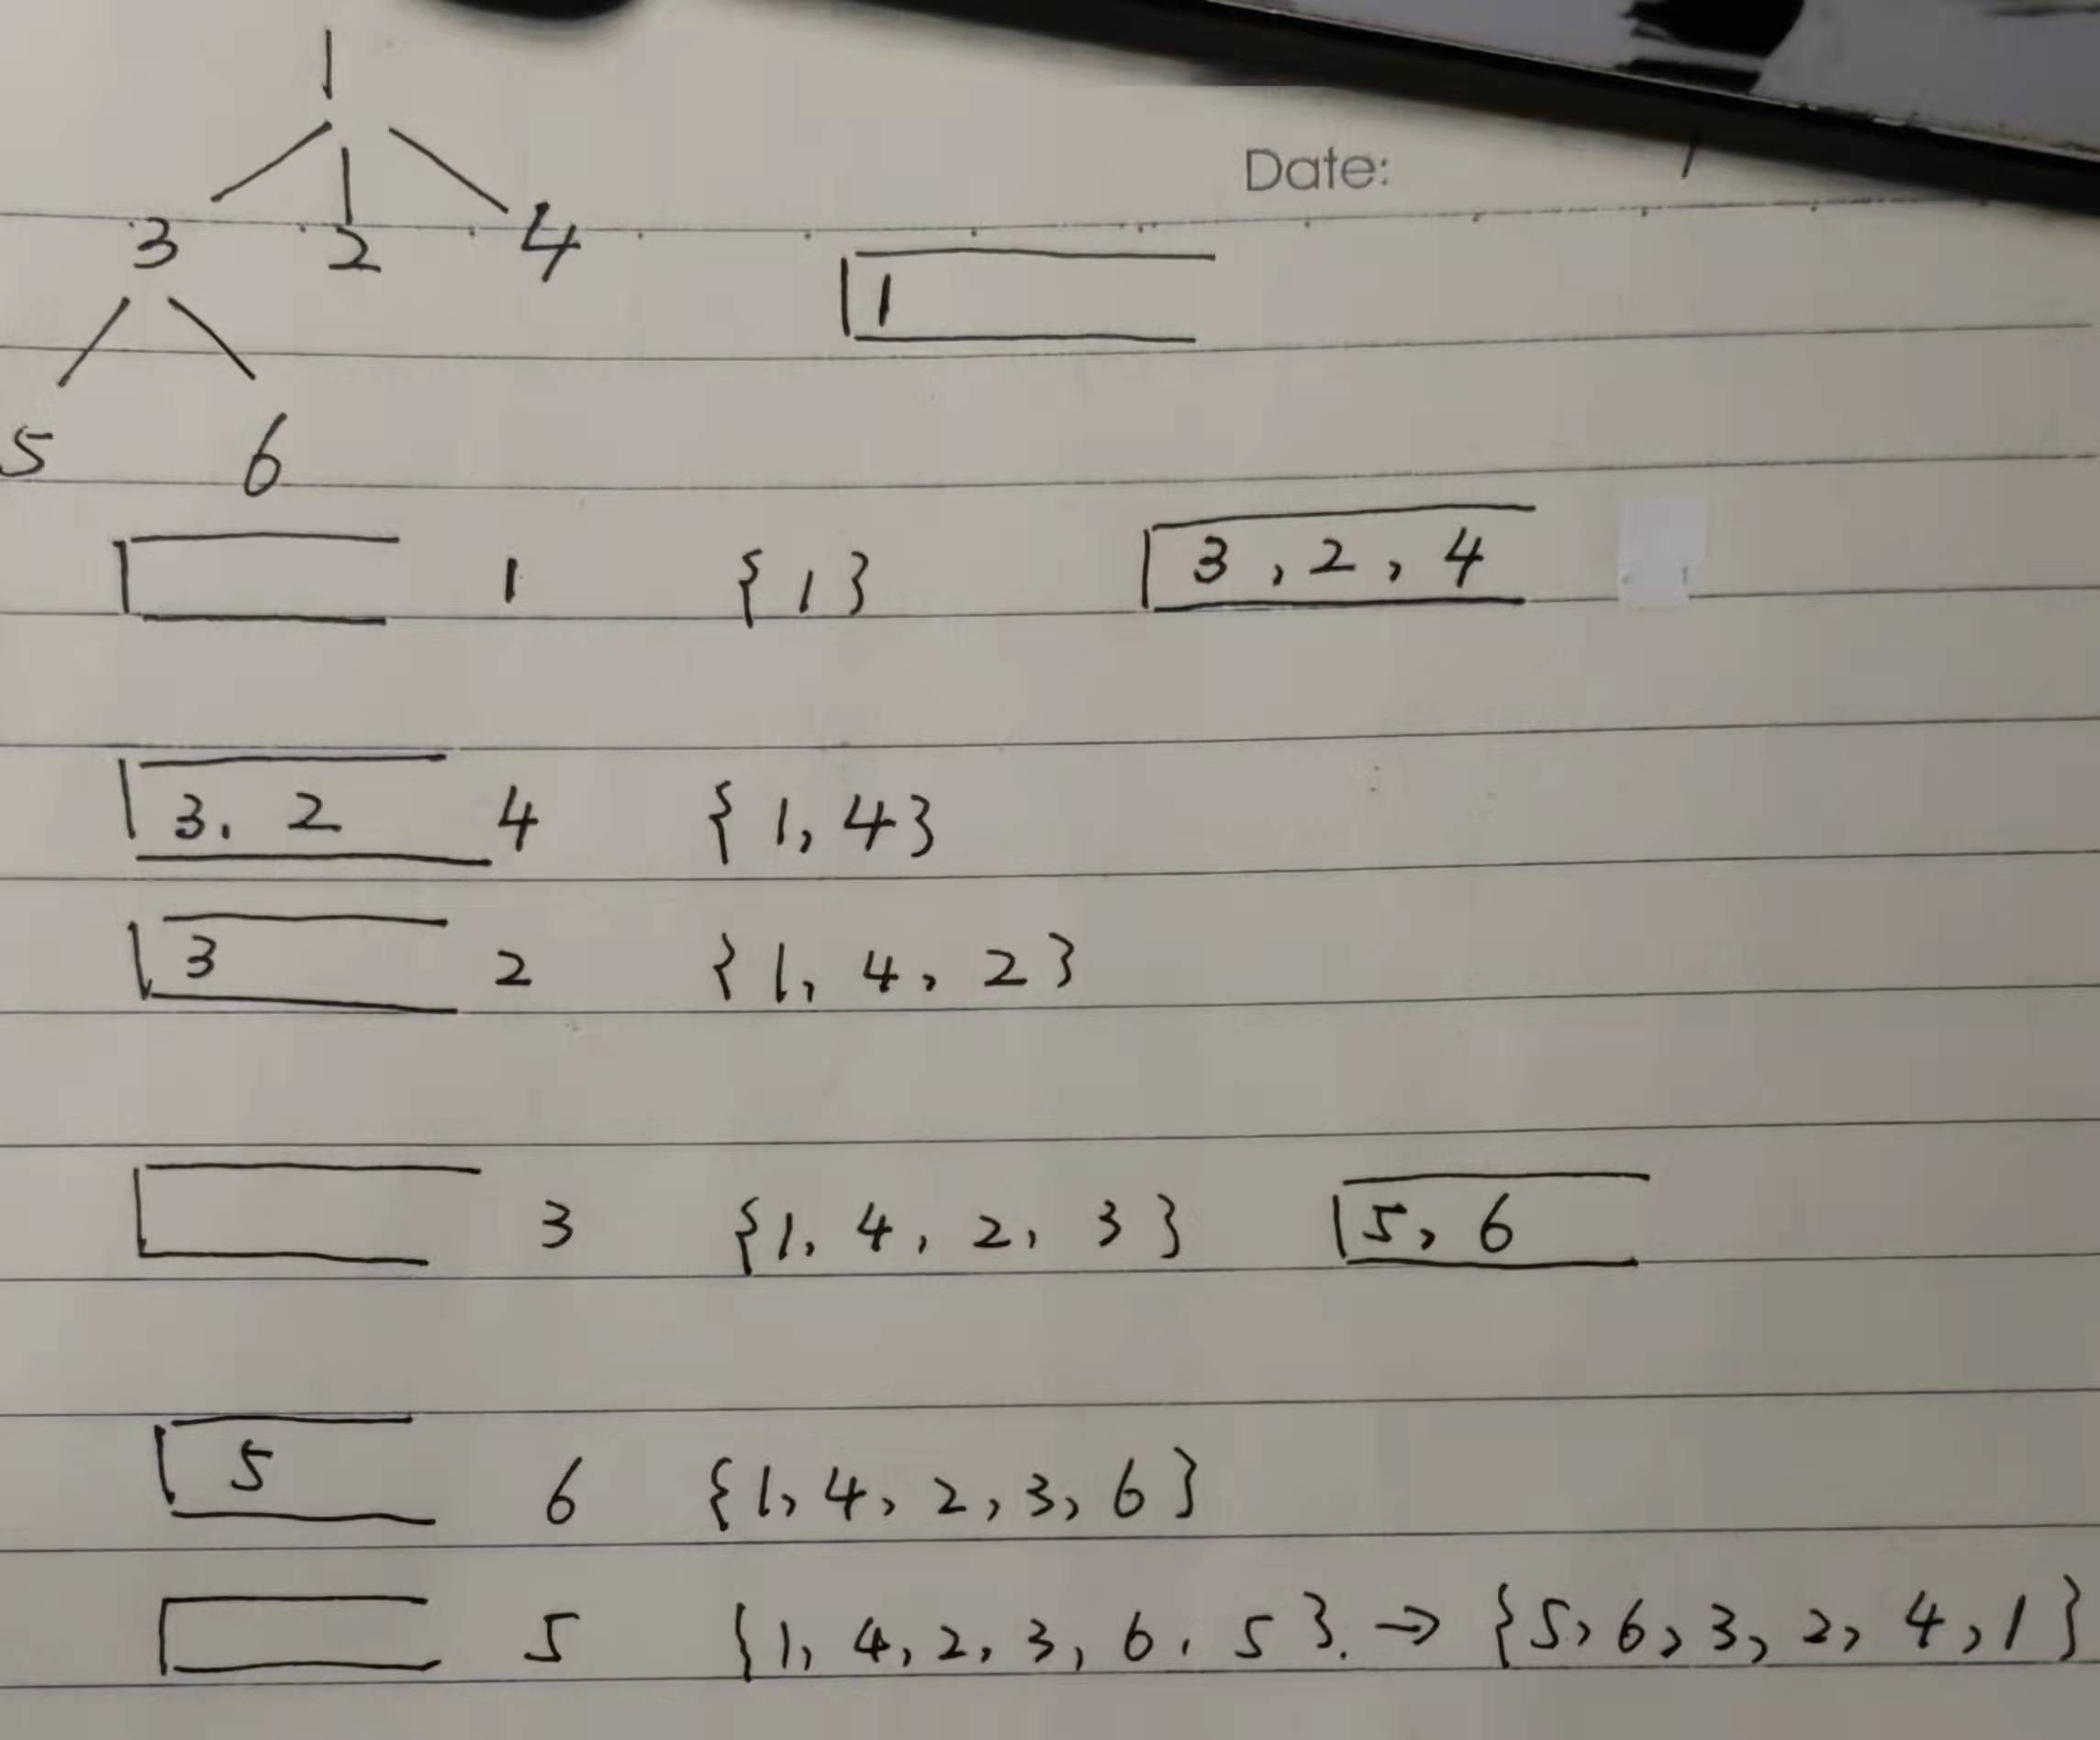 1
Date:
3 2 4
1
5 6
1 {1} 3, 2, 4
3, 2 4 {1, 4}
3 2 {1, 4, 2}
3 {1, 4, 2, 3} 5, 6
5 6 {1, 4, 2, 3, 6}
5 {1, 4, 2, 3, 6, 5}. → {5, 6, 3, 2, 4, 1}